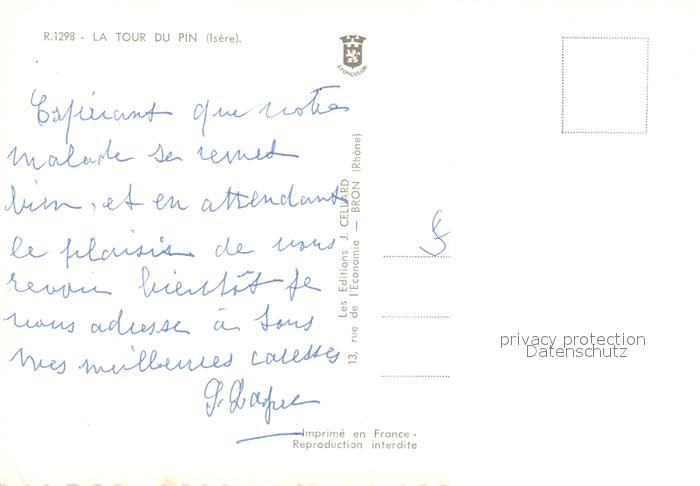 R.1298 - LA TOUR DU PIN (Isère).
LYONCOLOR
Espérant que notre
malade se remet
bien, et en attendant
le plaisir de vous
revoir bientôt je
vous adresse à tous
mes meilleures caresses
Les Editions J. CELLARD
13, rue de l'Economie — BRON (Rhône)
privacy protection
Datenschutz
Imprimé en France -
Reproduction interdite